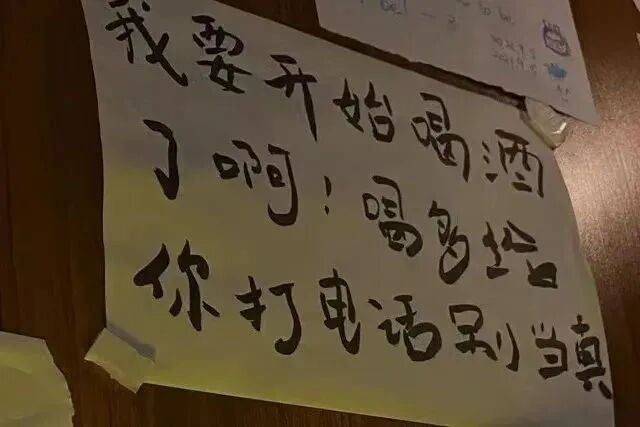 我要开始喝酒
了啊！喝多给
你打电话别当真